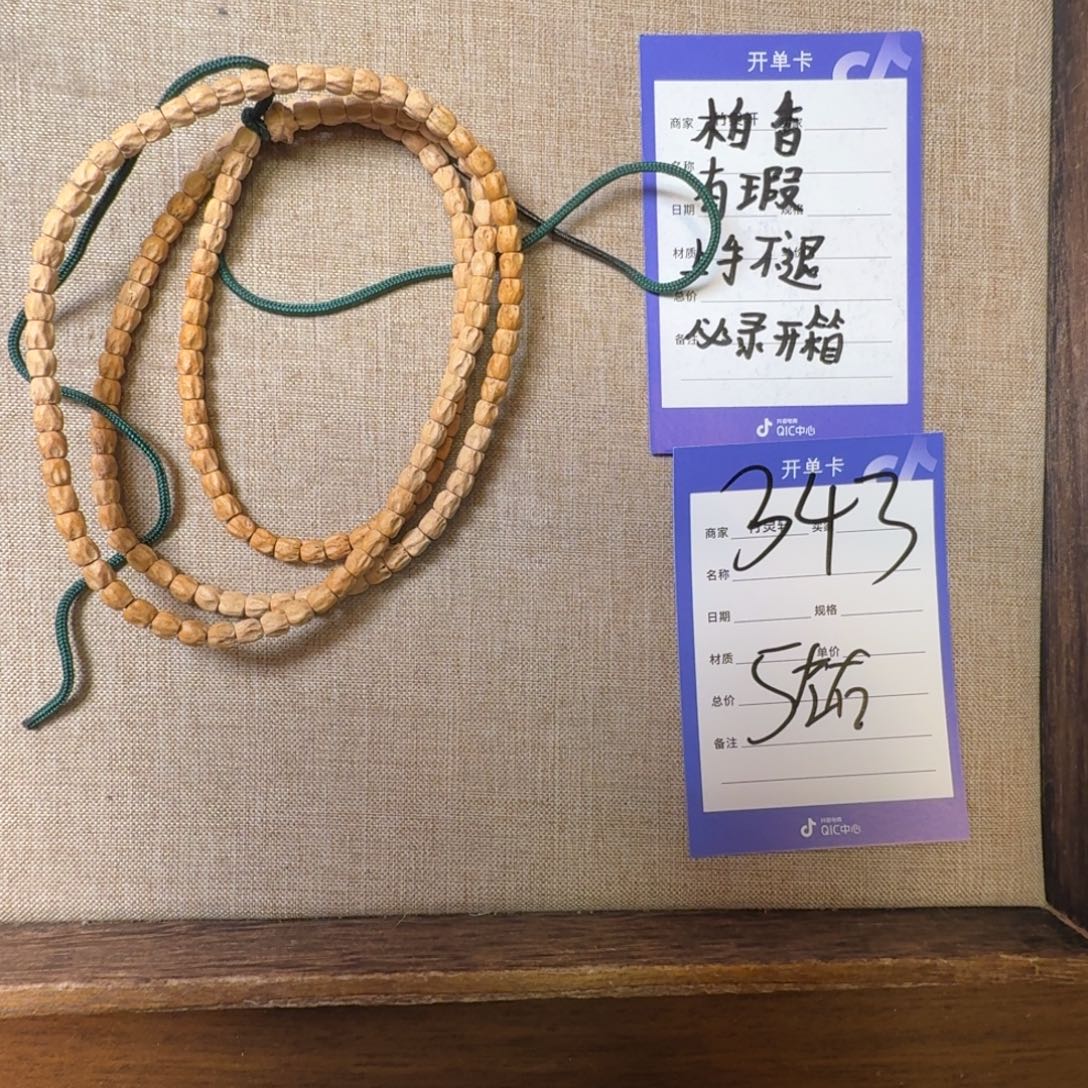 开单卡
商家
柏香
名称
有瑕
日期 规格
材质
上手不退
总价
备注
必录开箱
抖音电商
QIC中心
开单卡
343
商家 买家
名称
日期 规格
材质 单价
总价
备注
抖音电商
QIC中心